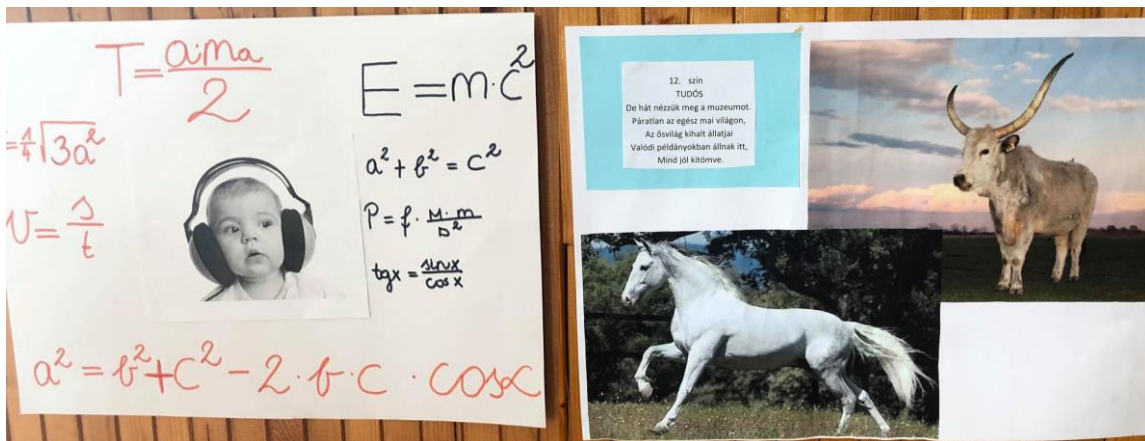 T = a·ma / 2
E = m·c²
= 1/4 √3a²
a² + b² = c²
v = s / t
P = f · M·m / D²
tgx = sinx / cosx
a² = b² + c² - 2·b·c · cosα
12. szín
TUDÓS
De hát nézzük meg a muzeumot.
Páratlan az egész mai világon,
Az ősvilág kihalt állatjai
Valódi példányokban állnak itt,
Mind jól kitömve.